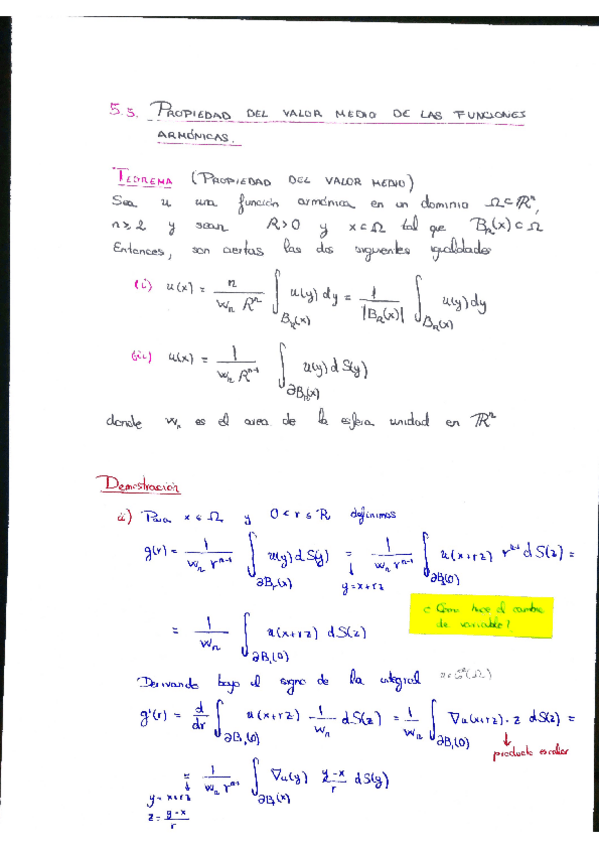 5.3. PROPIEDAD DEL VALOR MEDIO DE LAS FUNCIONES
ARMÓNICAS.
TEOREMA (PROPIEDAD DEL VALOR MEDIO)
Sea u una función armónica en un dominio Ω⊂ℝⁿ,
n≥2 y sean R>0 y x∈Ω tal que B_R(x)⊂Ω
Entonces, son ciertas las dos siguientes igualdades
(i) u(x) = n/(w_n Rⁿ) ∫_{B_R(x)} u(y) dy = 1/|B_R(x)| ∫_{B_R(x)} u(y) dy
(ii) u(x) = 1/(w_n Rⁿ⁻¹) ∫_{∂B_R(x)} u(y) dS(y)
donde w_n es el area de la esfera unidad en ℝⁿ
Demostración
ii) Para x∈Ω y 0<r≤R definimos
g(r) = 1/(w_n rⁿ⁻¹) ∫_{∂B_r(x)} u(y) dS(y) = 1/(w_n rⁿ⁻¹) ∫_{∂B_1(0)} u(x+rz) rⁿ⁻¹ dS(z) =
y=x+rz
¿Cómo hace el cambio
de variable?
= 1/w_n ∫_{∂B_1(0)} u(x+rz) dS(z)
Derivando bajo el signo de la integral
g'(r) = d/dr ∫_{∂B_1(0)} u(x+rz) 1/w_n dS(z) = 1/w_n ∫_{∂B_1(0)} ∇u(x+rz)·z dS(z) =
producto escalar
= 1/(w_n rⁿ⁻¹) ∫_{∂B_r(x)} ∇u(y) (y-x)/r dS(y)
y=x+rz
z=(y-x)/r